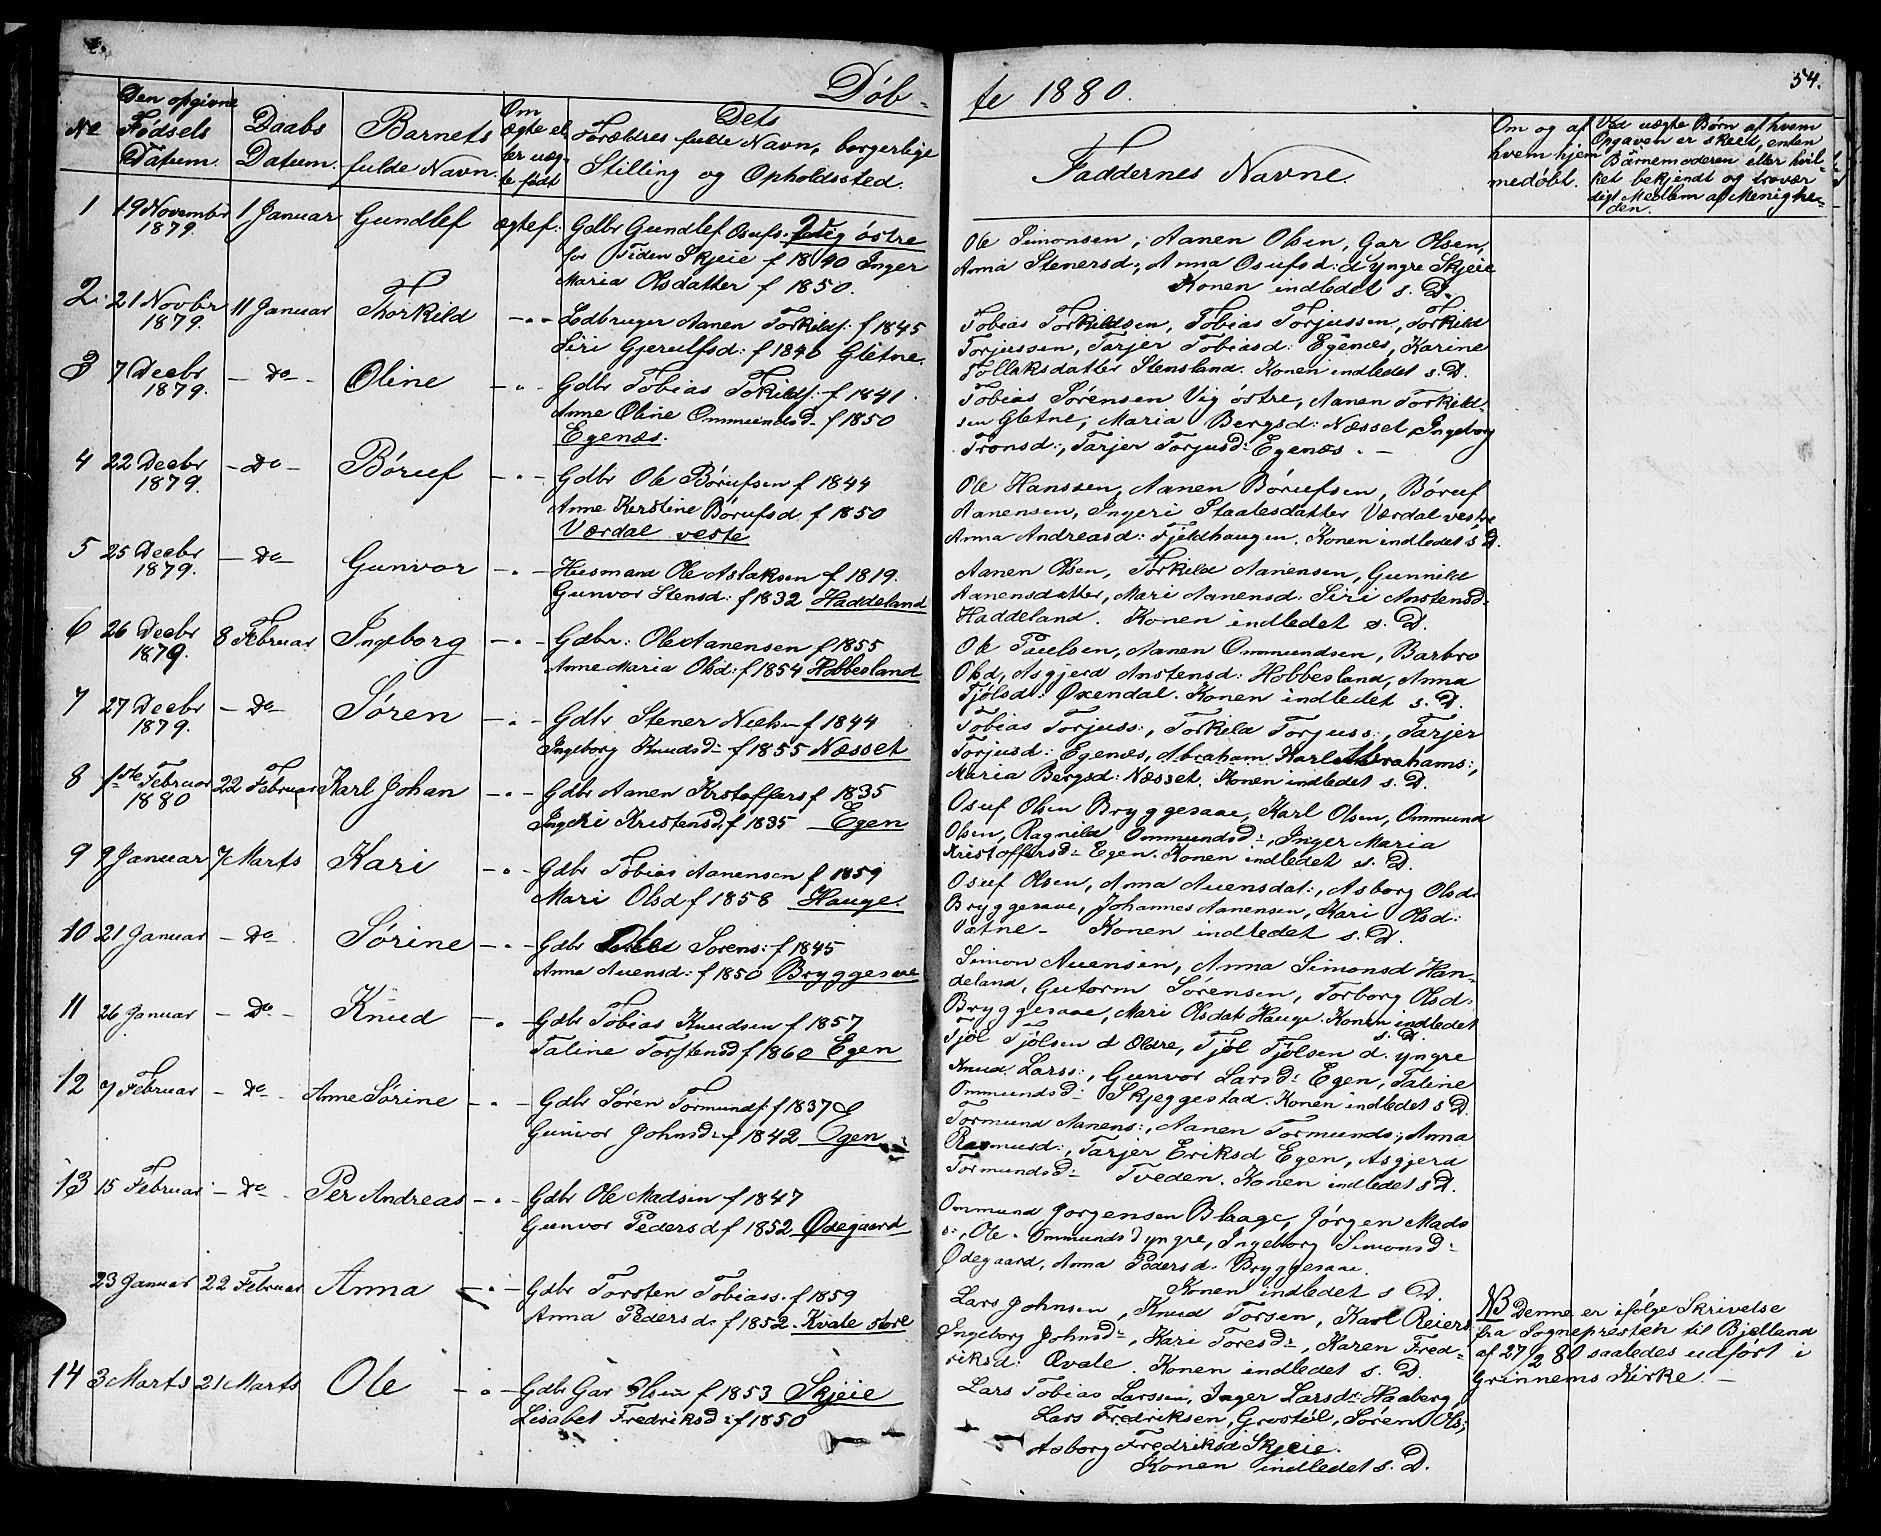 Döb-
te 1880.
54.
No
Den opgivne Fødsels Datum.
Daabs Datum.
Barnets fulde Navn.
Om ægte el- ler uæg- te født
Dets Forældres fulde Navn, borgerlige Stilling og Opholdssted.
Faddernes Navne.
Om og af hvem hjem- medøbt.
Ved uægte Børn af hvem Opgaven er skeet, enten Barnemoderen eller hvil- ket bekjendt og trovær- digt Medlem af Menighe- den.
1 19 November 1 Januar Gundlef ægtef: Gdbr Gundlef Osufs. Vig östre
1879. for Tiden Skjeie f 1840 Inger
Maria Olsdatter f 1850.
Ole Simonsen, Aanen Olsen, Gar Olsen,
Anna Stenersd:, Anna Osufsd: d yngre Skjeie
Konen indledet s. D.
2. 21 Novbr 11 Januar Thorkild - " - Ledbruger Aanen Torkilds: f 1845
1879. Siri Gjerulfsd: f 1840 Gletne.
Tobias Torkildsen, Tobias Torjussen, Torkild
Torjussen, Tarjer Tobiasd: Egenæs, Karine
Tollaksdatter Stensland. Konen indledet s. D.
3 7 Decbr - Do - Oline - " - Gdbr Tobias Tokilds: f 1841.
1879. Anne Oline Ommundsd. f 1850
Egenæs.
Tobias Sørensen Vig östre, Aanen Torkild-
sen Gletne, Maria Bergsd: Næsset, Ingeborg
Tronsd:, Tarjer Torjusd: Egenæs. -
4 22 Decbr - Do - Böruf - " - Gdbr Ole Börufsen f 1844
1879. Anne Kirstine Börufsd f 1850
Værdal veste
Ole Hanssen, Aanen Börufsen, Böruf
Aanensen, Ingeri Staalesdatter Værdal vestre
Anna Andreasd: Fjeldhaugen. Konen indledet s D.
5 25 Decbr - Do - Gunvor - " - Husmand Ole Aslaksen f 1819.
1879. Gunvor Stensd: f 1832 Haddeland
Aanen Olsen, Torkild Aanensen, Gunnild
Aanensdatter, Mari Aanensd: Siri Anstensd:
Haddeland. Konen indledet s. D.
6 26 Decbr 8 Februar Ingeborg - " - Gdbr: Ole Aanensen f 1855
1879. Anne Maria Olsd: f 1854 Hobbesland
Ole Paulsen, Aanen Ommundsen, Barbro
Olsd, Asgjerd Anstensd: Hobbesland, Anna
Tjölsd: Øxendal. Konen indledet s. D.
7 27 Decbr - Do - Søren - " - Gdbr Stener Nielsen f 1844
1879. Ingeborg Knudsd: f 1855 Næsset
Tobias Torjuss:, Torkild Torjuss:, Tarjer
Torjusd: Egenæs, Abraham Karl Abrahams:,
Maria Bergsd: Næsset. Konen indledet s. D.
8 1ste Februar 22 Februar Karl Johan - " - Gdbr Aanen Kristoffers f 1835
1880 Ingeri Kristensd: f 1835 Egen
Osuf Olsen Bryggesaae, Karl Olsen, Ommund
Olsen, Ragnild Ommundsd:, Inger Maria
Kristoffersd: Egen. Konen indledet s. D.
9 9 Januar 7 Marts Kari - " - Gdbr Tobias Aanensen f 1859
Mari Olsd f 1858 Hauge.
Osuf Olsen, Anna Auensdat:, Asborg Olsd:
Bryggesaae, Johannes Aanensen, Kari Olsd:
Vatne - Konen indledet s. D.
10 21 Januar - Do - Sørine - " - Gdbr Sørens: f 1845
Anna Auensd: f 1850 Bryggesaae
Simon Auensen, Anna Simonsd Han-
deland, Gutorm Sørensen, Torborg Olsd:
Bryggesaae, Mari Olsdat: Hauge. Konen indledet
s. D.
11 26 Januar - Do - Knud - " - Gdbr Tobias Knudsen f 1857
Taline Torstensd f 1860 Egen
Tjöl Tjölsen d Øldre, Tjöl Tjölsen d. yngre
Knud Larss:, Gunvor Larsd: Egen, Taline
Ommundsd: Skjeggestad. Konen indledet s D.
12 7 Februar - Do - Anne Sørine - " - Gdbr Søren Tormunds: f 1837
Gunvor Johnsd: f 1842 Egen
Tormund Aanens:, Aanen Tormunds:, Anna
Rasmusd:, Tarjer Eriksd Egen, Asgjerd
Tormundsd: Tveden. Konen indledet s D.
13 15 Februar - Do - Per Andreas - " - Gdbr Ole Madsen f 1847
Gunvor Pedersd f 1852 Ødegaard
Ommund Jørgensen Blaage, Jørgen Mads
s:, Ole Ommunds d yngre, Ingeborg Simonsd:
Ødegaard, Anna Pedersd. Bryggesaae.
Konen indledet s D.
23 Januar 22 Februar Anna - " - Gdbr Torsten Tobiass. f 1859
Anna Pedersd: f 1852. Kvale störe
Lars Johnsen, Knud Torsen, Karl Reiers
Ingeborg Johnsd:, Kari Toresd:, Karen Fred-
riksd: Qvale. Konen indledet s. D.
NB Denne er ifølge Skrivelse
fra Sognepresten til Bjelland
af 27/2 80 saaledes udført i
Grinnems Kirke. -
14 3 Marts 21 Marts Ole - " - Gdbr Gar Olsen f 1853 Skjeie
Lisabet Fredriksd: f 1850
Lars Tobias Larssen, Inger Larsd: Haaberg,
Lars Fredriksen, Grostöl, Søren Ols:,
Asborg Fredriksd Skjeie.
Konen indledet s. D.